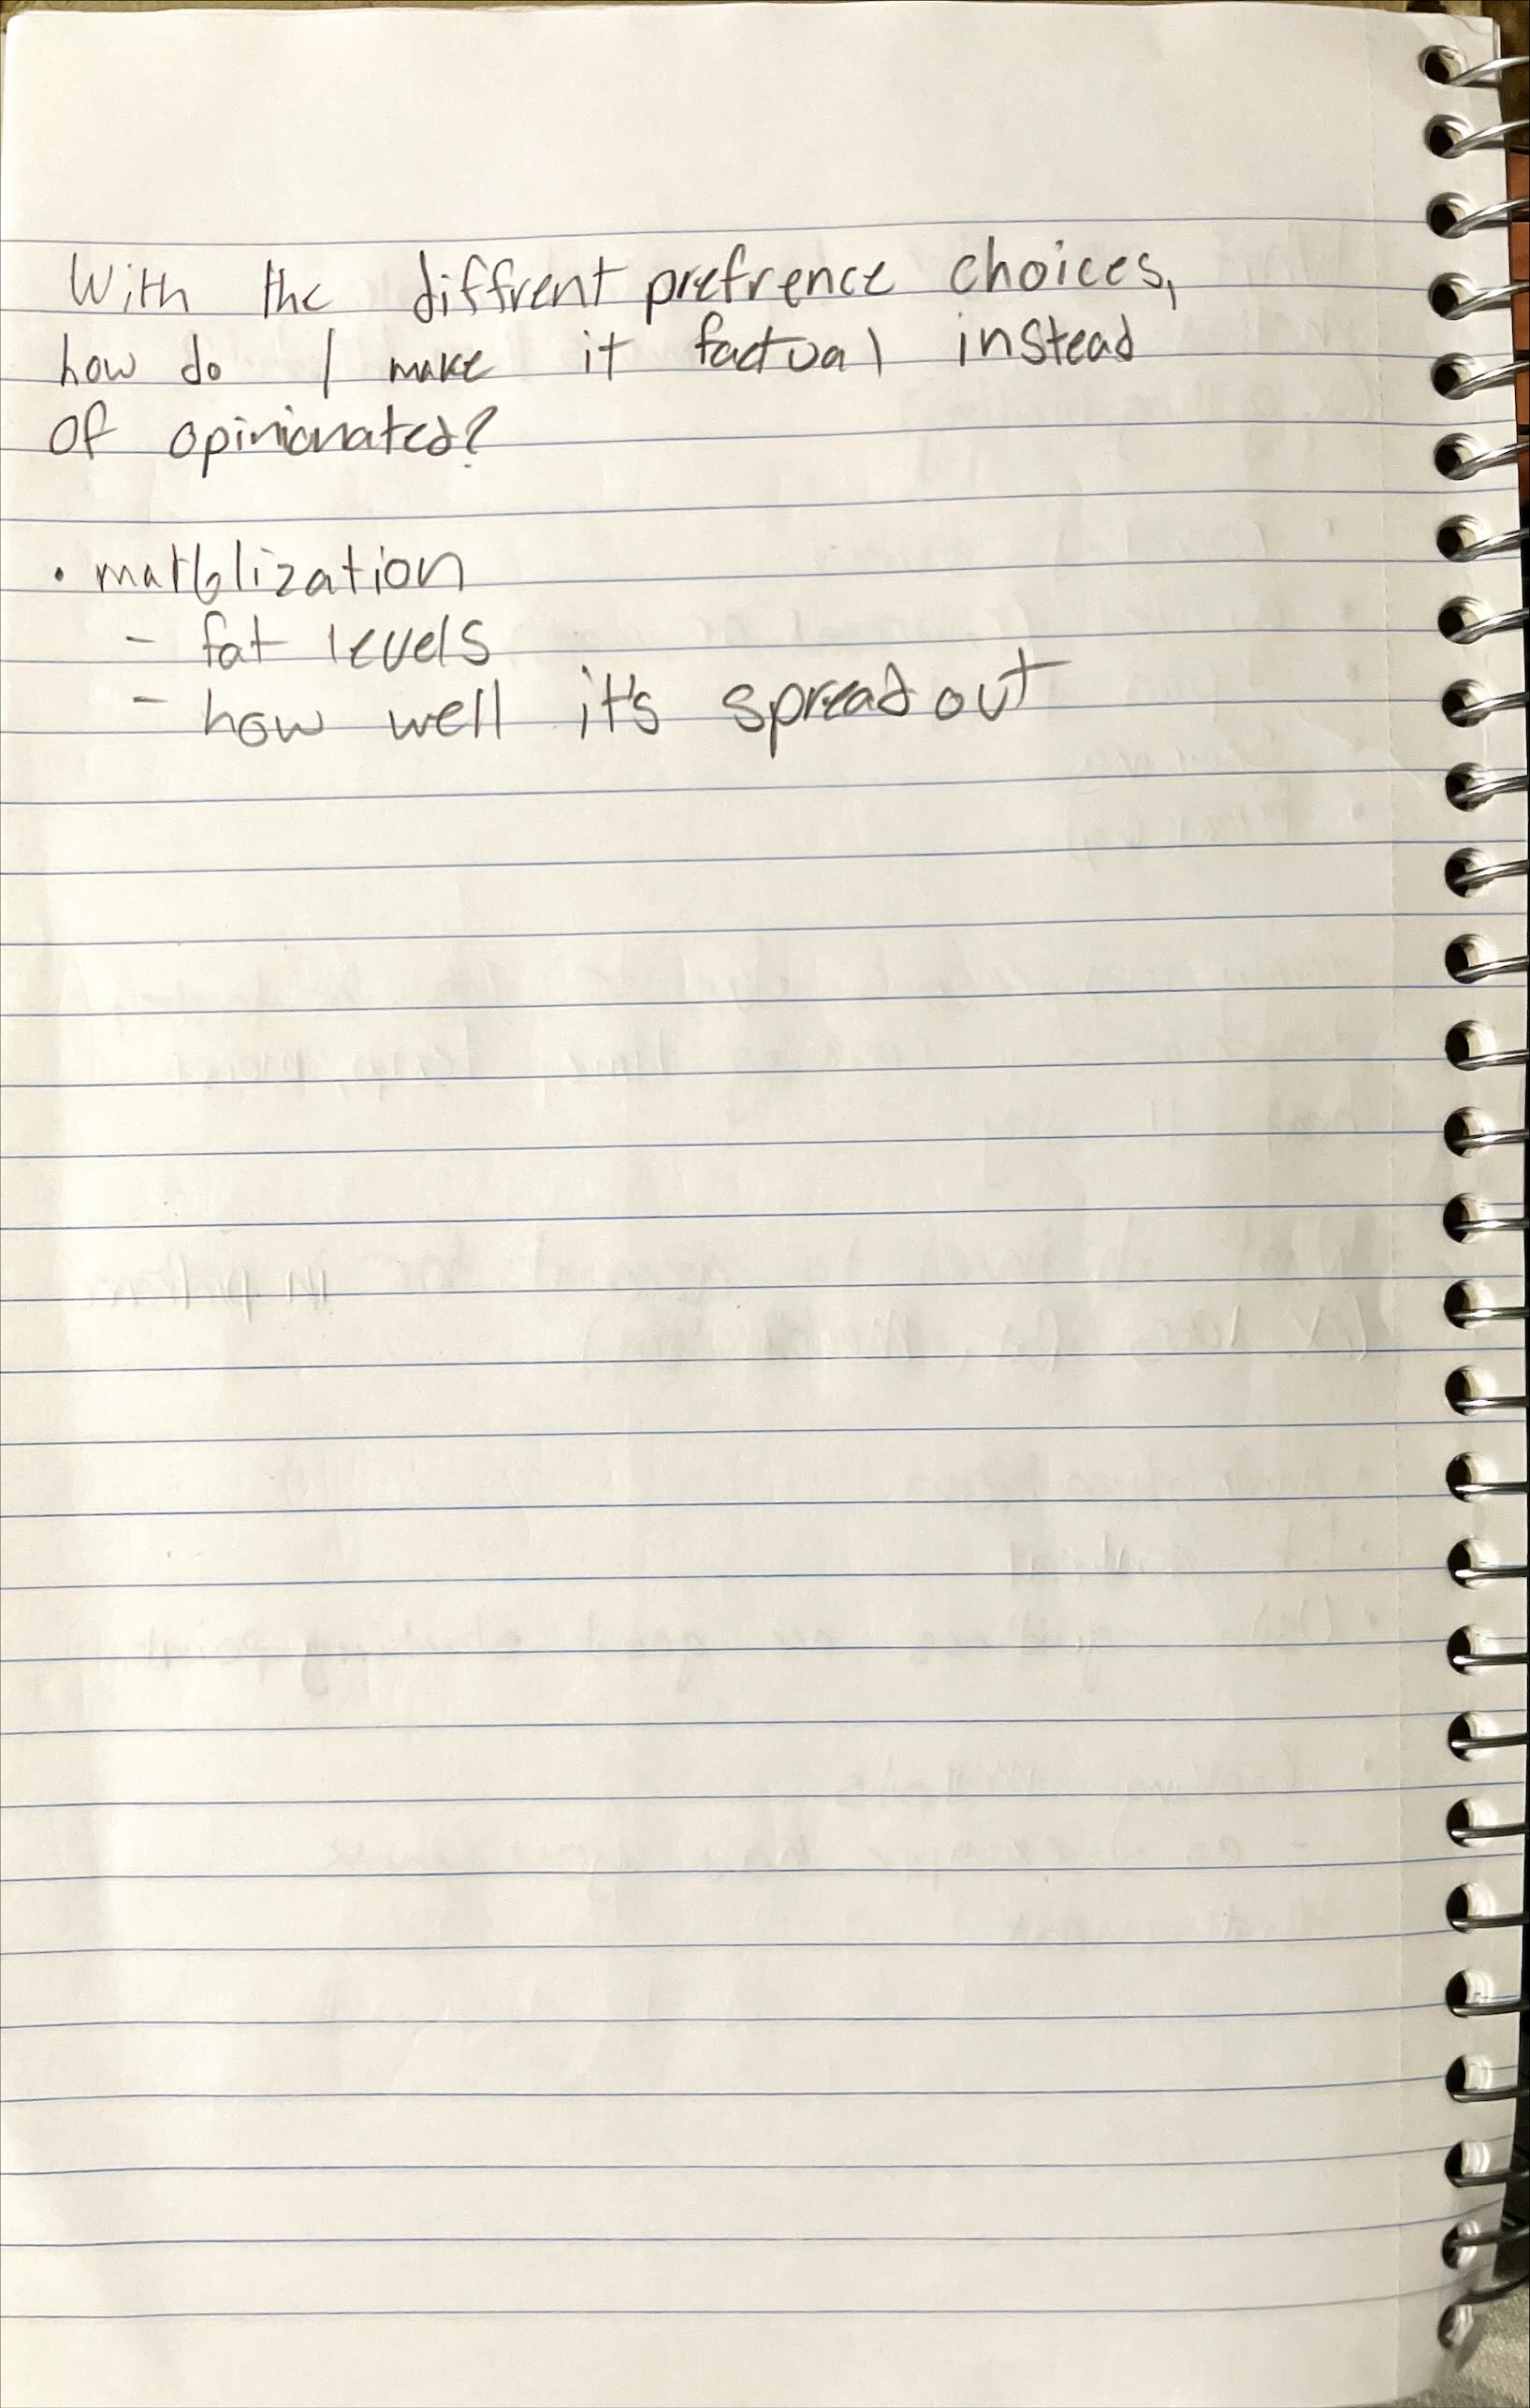 With the diffrent prefrence choices,
how do I make it factual instead
of opinionated?
• marblization
- fat levels
- how well it's spread out